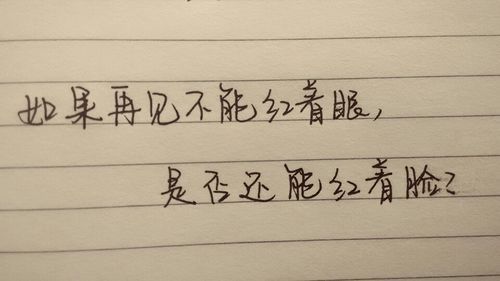 如果再见不能红着眼,
是否还能红着脸?